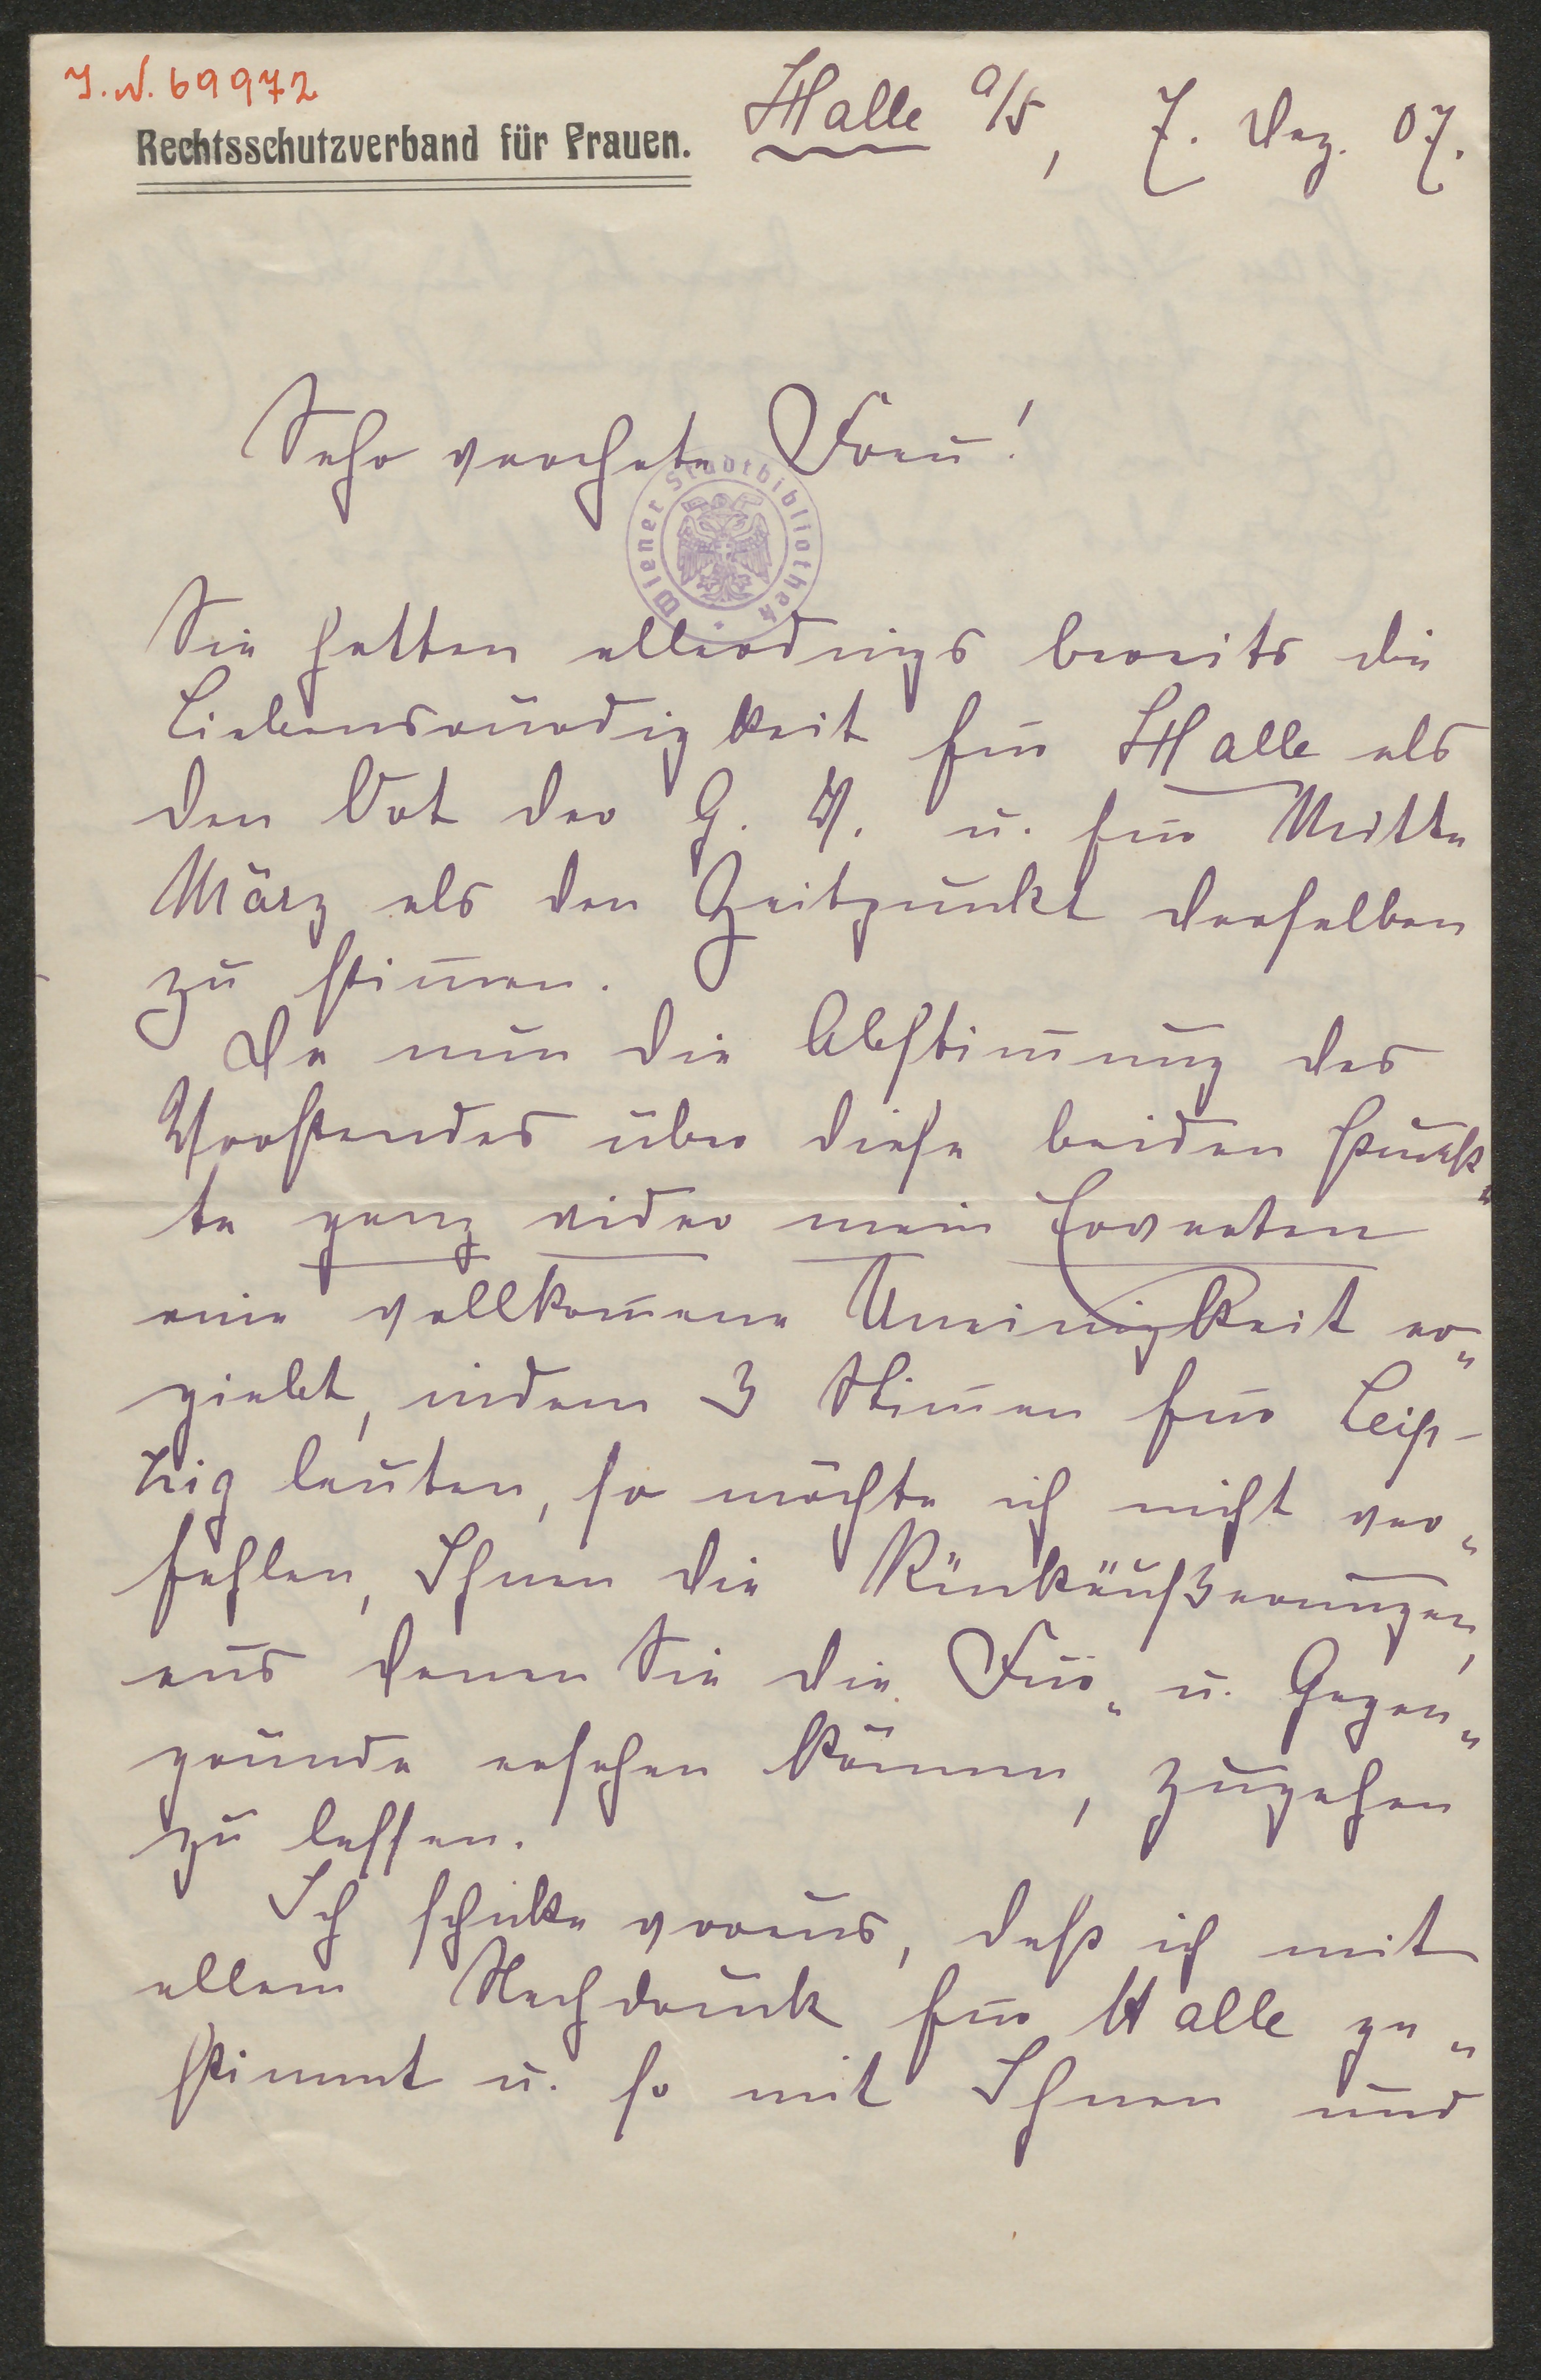 I. N. 69972
Rechtsschutzverband für Frauen.
Halle a/S, 7. Dez. 07.
Sehr verehrte Frau!
Wiener Stadtbibliothek
Sie hatten allerdings bereits die
Liebenswürdigkeit für Halle als
den Ort der G. V. u. für Mitte
März als den Zeitpunkt derselben
zu stim̅en.
Da nun die Abstim̅ung des
Vorstandes über diese beiden Punk„
te ganz wider mein Erwarten
eine vollkom̅ene Uneinigkeit er„
giebt, indem 3 Stim̅en für Leip-
zig lauten, so möchte ich nicht ver„
fehlen, Ihnen die Rückäußerungen,
aus denen Sie die Für„ u. Gegen„
gründe ersehen können, zugehen
zu lassen.
Ich schicke voraus, daß ich mit
allem Nachdruck für Halle ge„
stimmt u. so mit Ihnen und